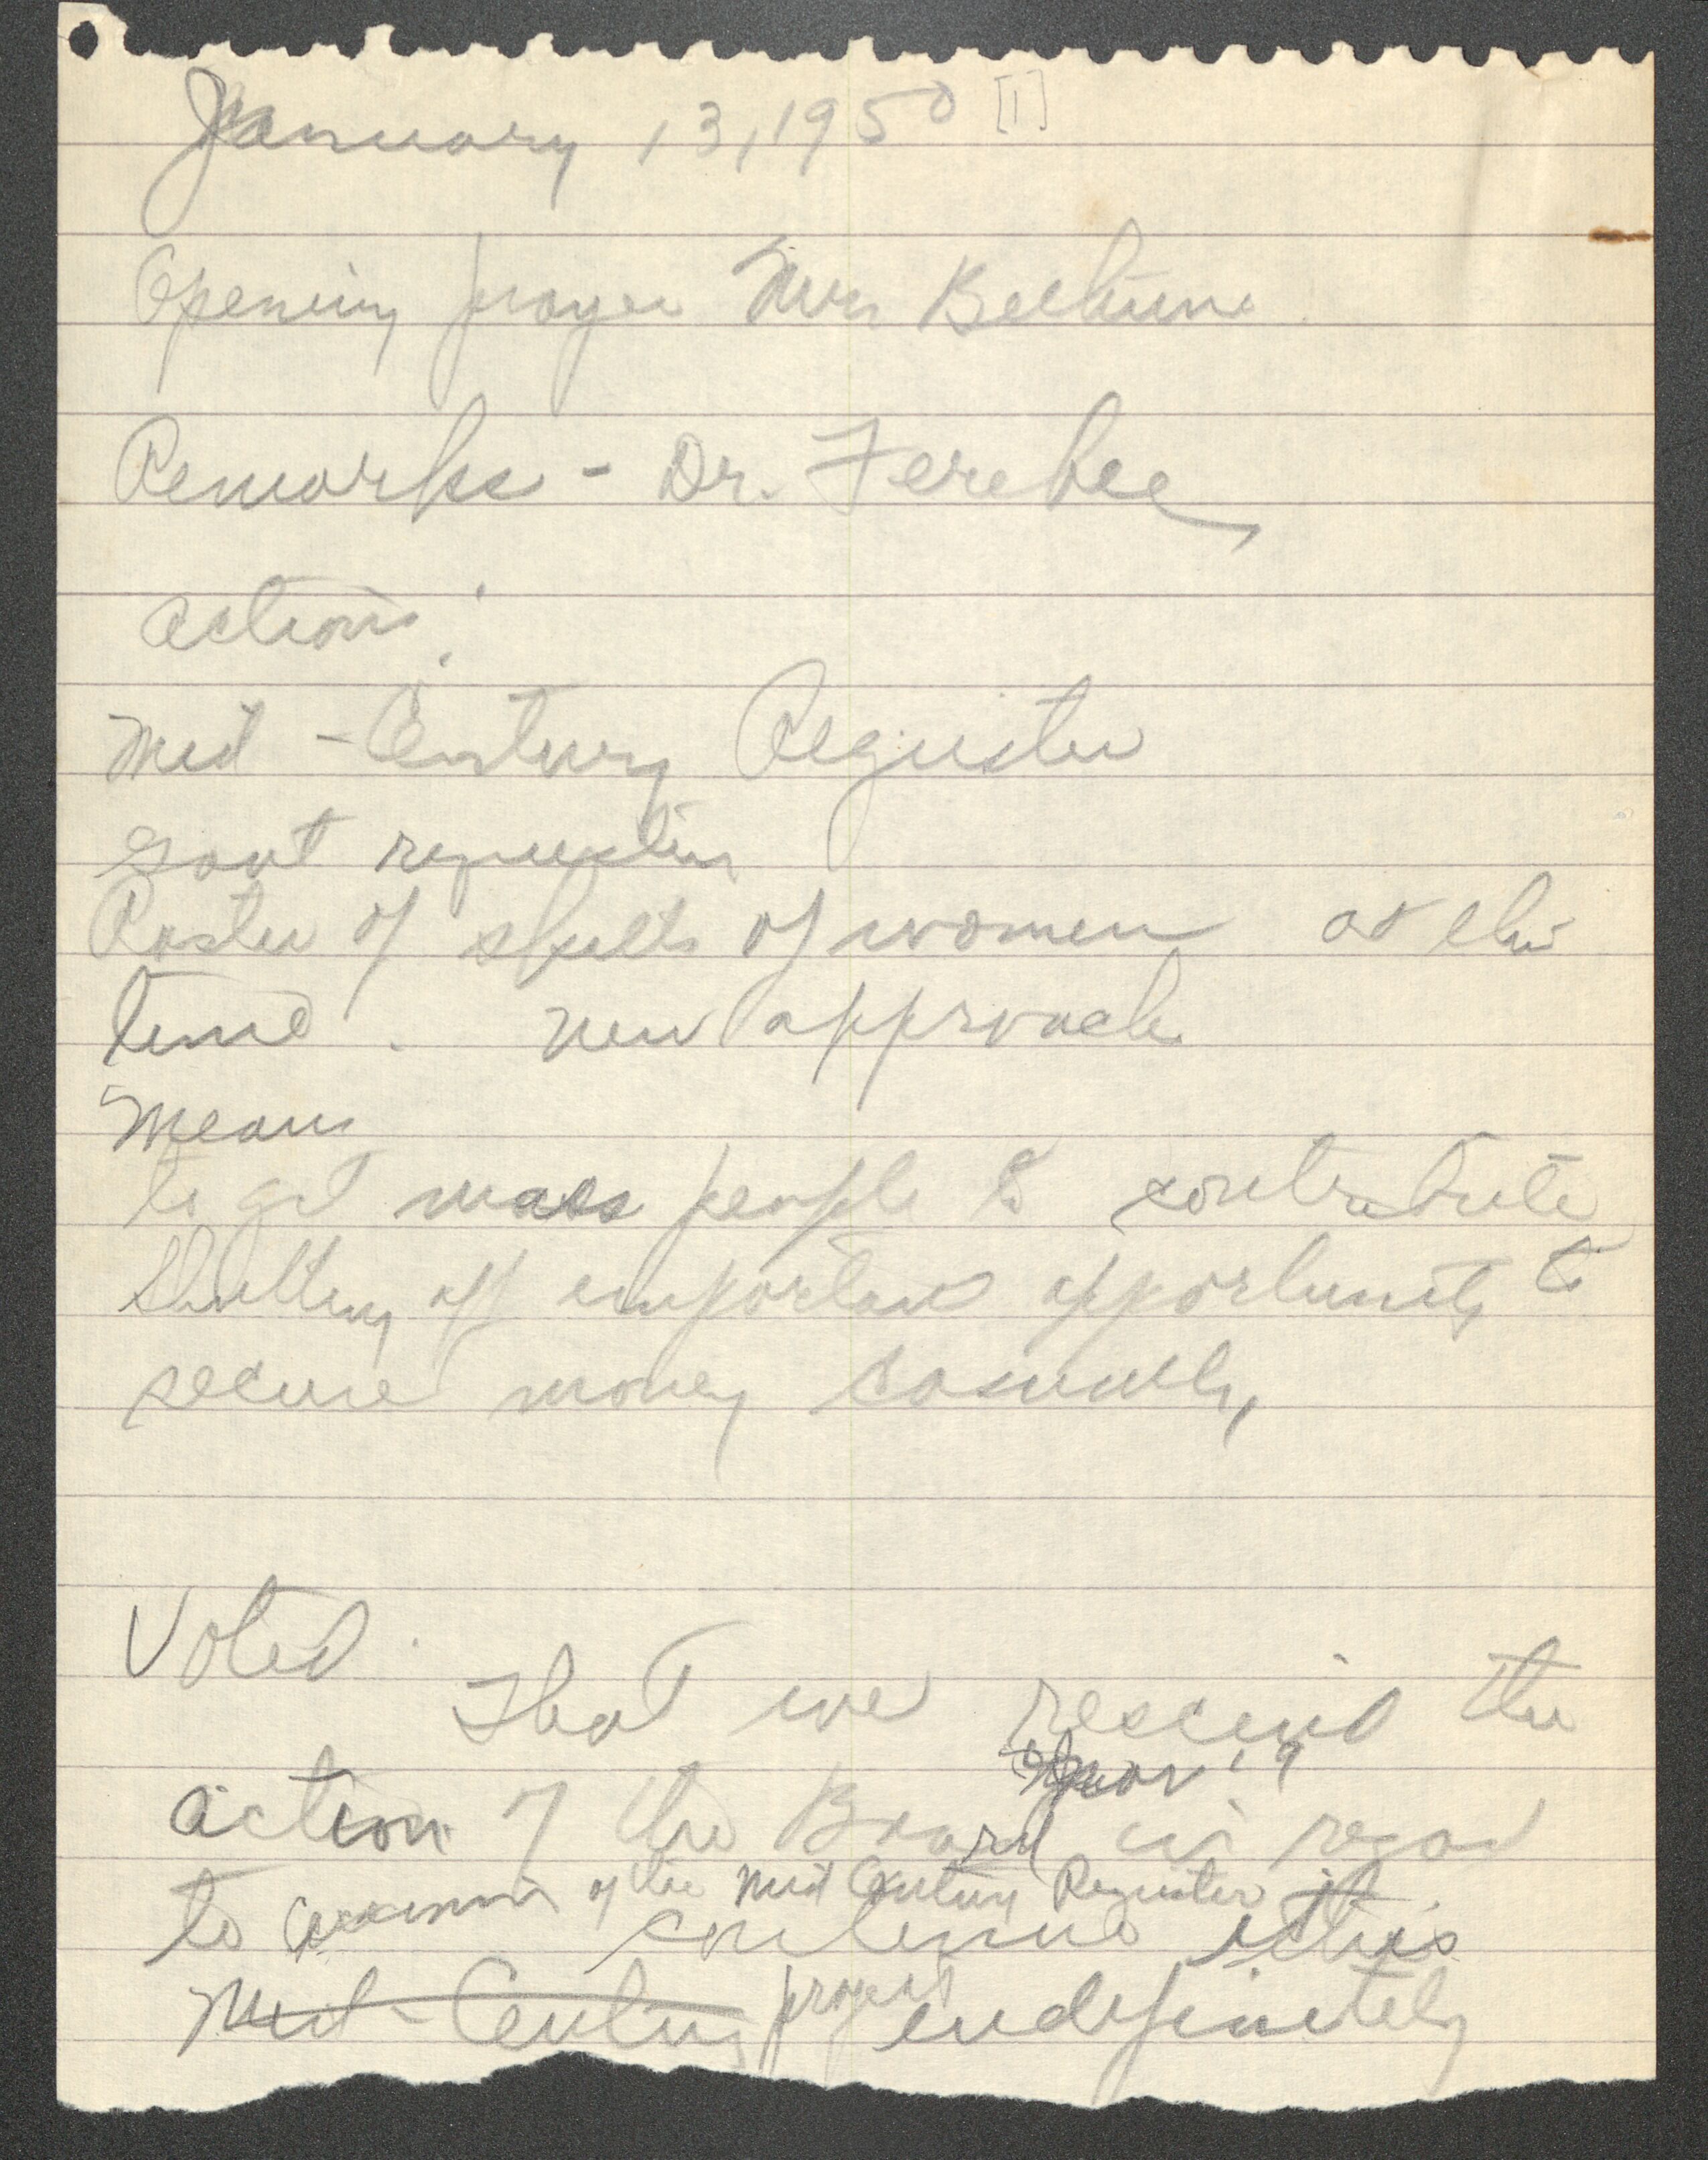 January 13, 1950 [1]
Opening prayer Mrs Bethune
Remarks - Dr. Ferebee
Actions:
Mid - Century Register
Govt requesting
Roster of skills of women at this
time. New approach
Means
to get mass people to contribute
Shutting off important opportunity to
secure money
Voted. That we rescind the
action of the Board in regard
to of the Mid Century Register
continue this
Mid-Century project indefinitely